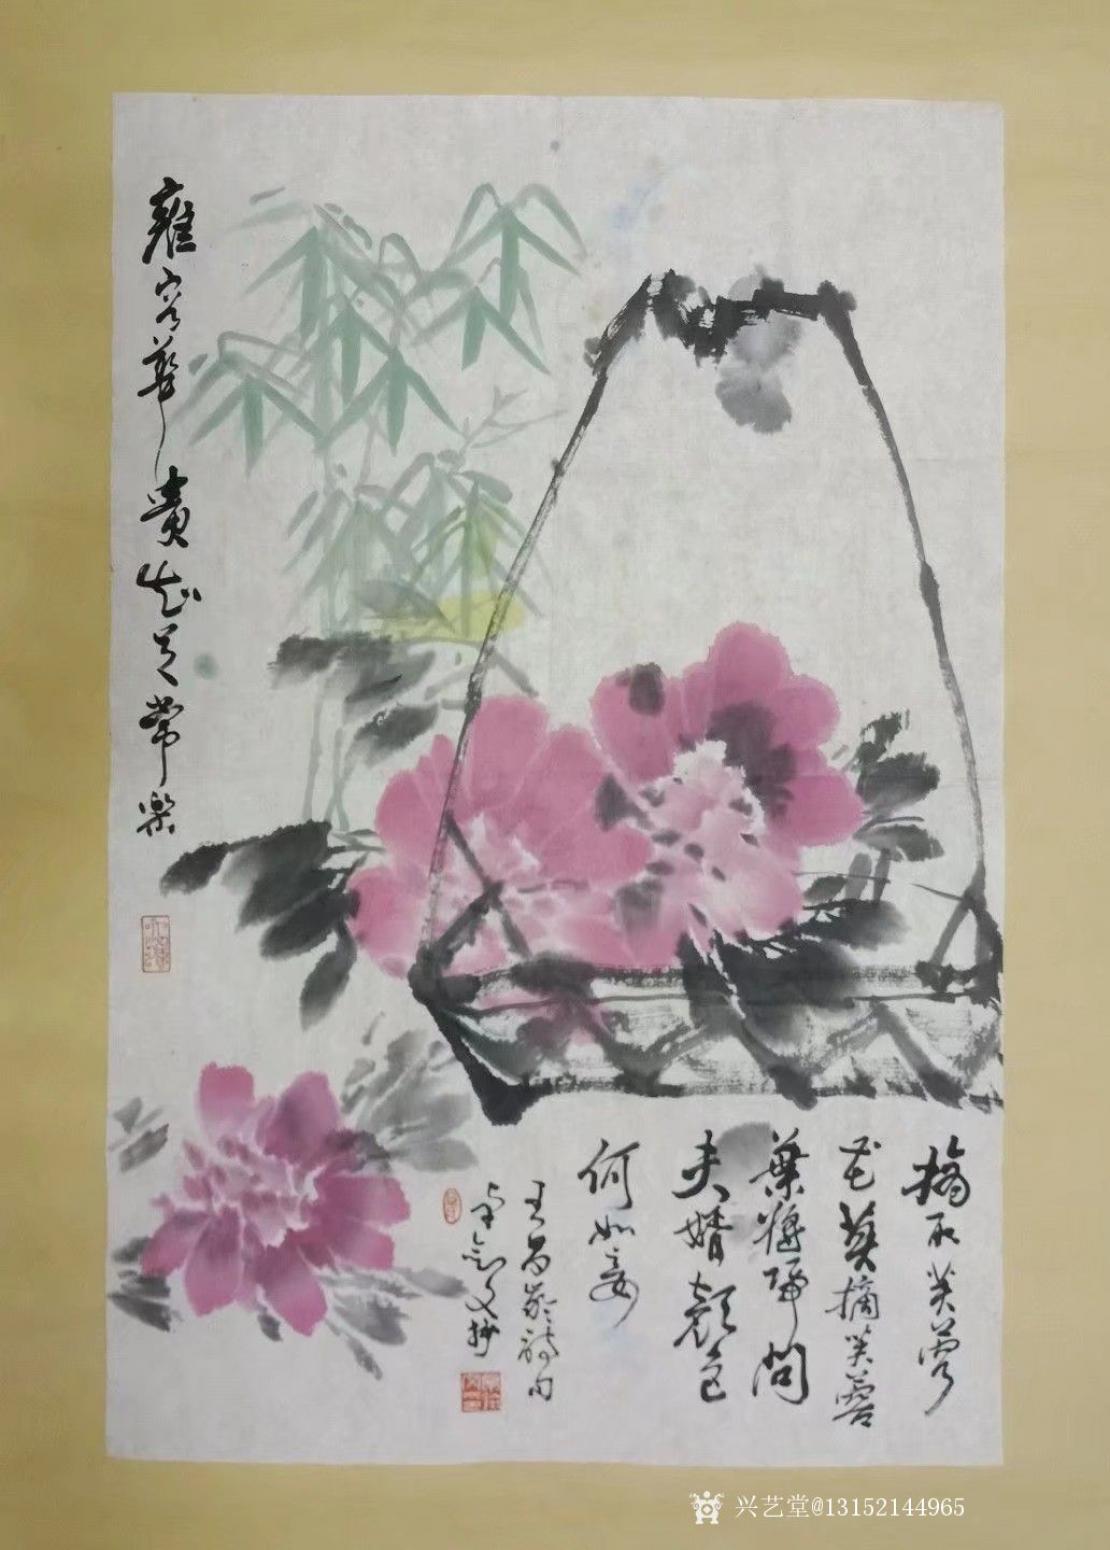 雍容華貴知足常樂
摘取芙蓉
花莫摘芙蓉
葉將歸問
夫婿顏色
何如妾
王昌齡詩句
文抄
兴艺堂@13152144965